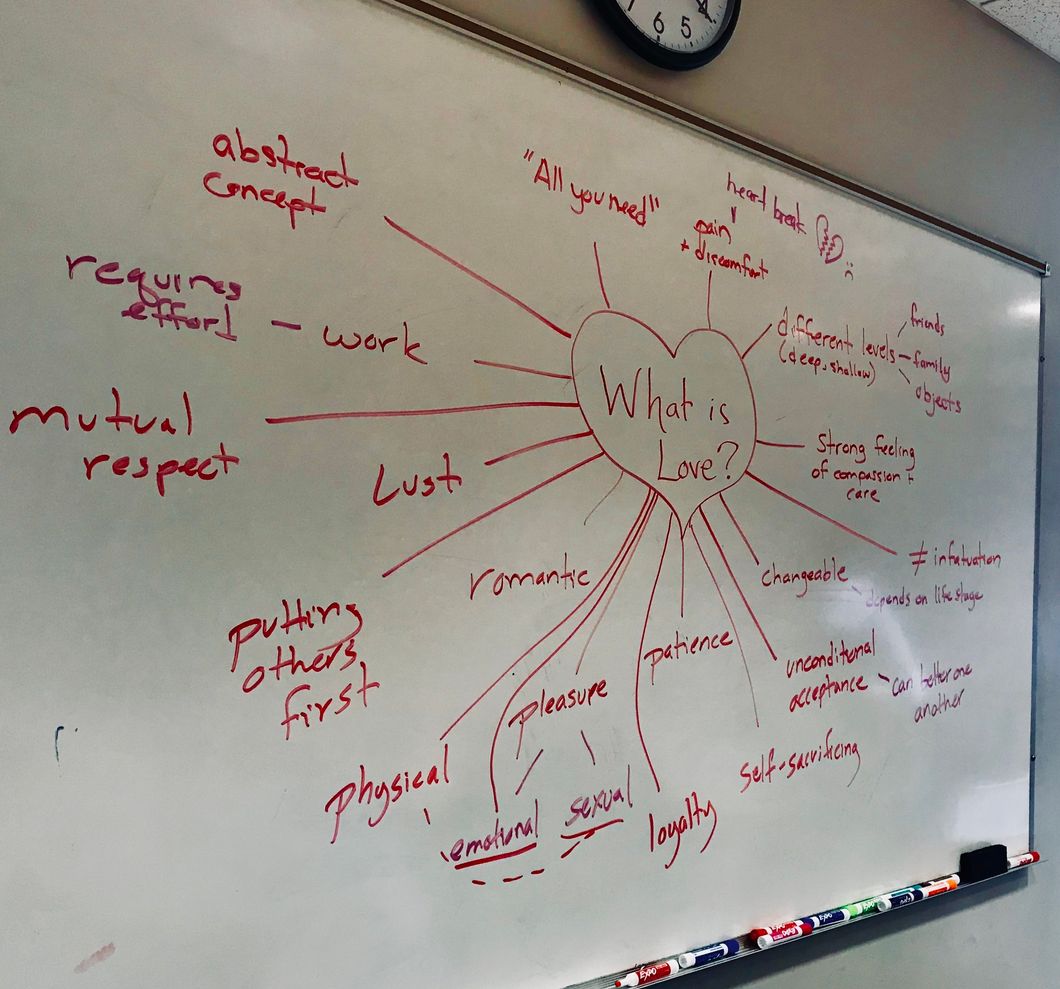 7 6 5
abstract
concept
"All you need"
heart break
pain
+ discomfort
requires
effort — work
mutual
respect
Lust
What is
Love?
different levels
(deep, shallow)
friends
family
objects
Strong feeling
of compassion +
care
≠ infatuation
changeable
depends on life stage
romantic
putting
others
first
patience
unconditional
acceptance
can better one
another
pleasure
self-sacrificing
physical
emotional
sexual
loyalty
EXPO
EXPO
EXPO
EXPO